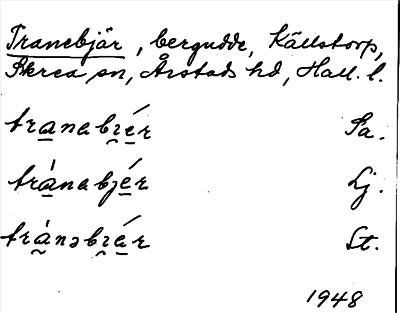 Tranebjär, bergudde, Källstorp,
Skrea sn, Årstads hd, Hall. l.
tranabɪ̯ér Pa.
tránabjér Lj.
tránəbɪ̯ér St.
1948